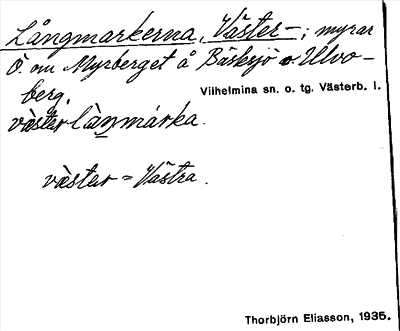 Långmarkerna, Väster-; myrar
Ö. om Myrberget å Bäsksjö o Ulvo-
berg.
Vilhelmina sn. o. tg. Västerb. l.
västerlànmárka.
väster = Västra.
Thorbjörn Eliasson, 1935.